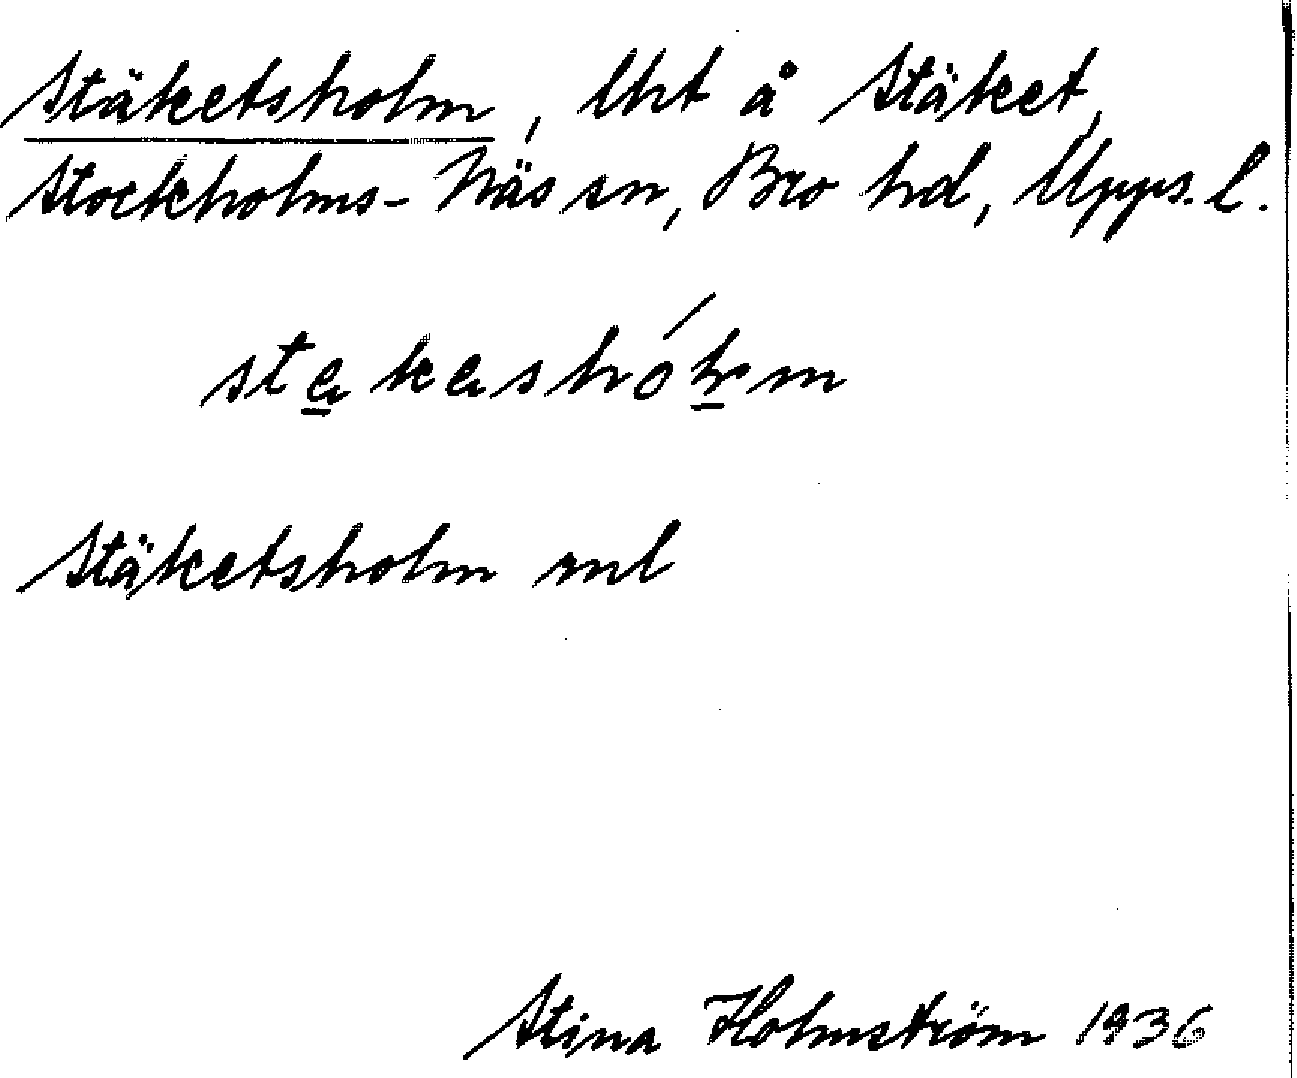 Stäketsholm, Lht å Stäket,
Stockholms-Näs sn, Bro hd, Upps. l.
Stäketsholm
Stina Holmström 1936